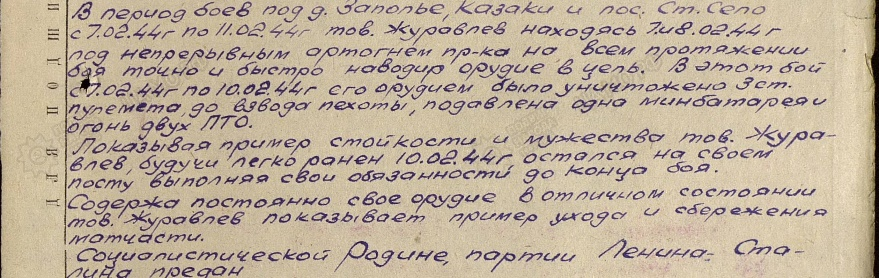 В период боев под д. Заполье, Казаки и пос. Ст. Село
с 7.02.44г по 11.02.44г тов. Журавлев находясь 7 и 8.02.44г
под непрерывным артогнем пр-ка на всем протяжении
боя точно и быстро наводил орудие в цель. В этот бой
с 7.02.44г по 10.02.44г его орудием было уничтожено 3 ст.
пулемета, до взвода пехоты, подавлена одна минбатарея и
огонь двух ПТО.
Показывая пример стойкости и мужества тов. Жура-
влев, будучи легко ранен 10.02.44г остался на своем
посту выполняя свои обязанности до конца боя.
Содержа постоянно свое орудие в отличном состоянии
тов. Журавлев показывает пример ухода и сбережения
матчасти.
Социалистической Родине, партии Ленина- Ста-
лина предан